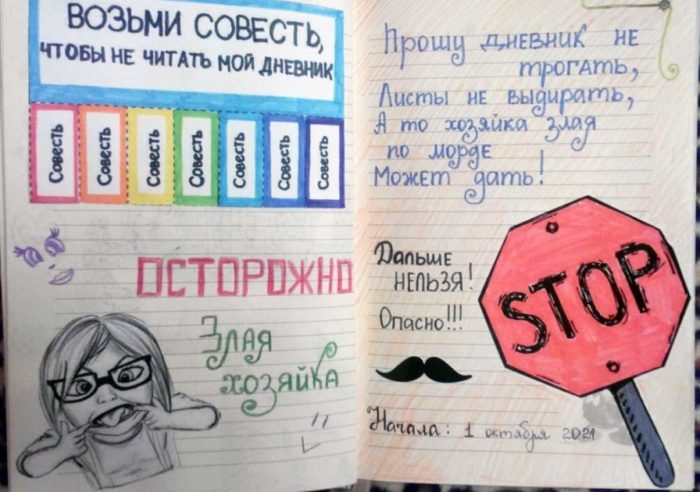 ВОЗЬМИ СОВЕСТЬ,
ЧТОБЫ НЕ ЧИТАТЬ МОЙ ДНЕВНИК
Совесть
Совесть
Совесть
Совесть
Совесть
Совесть
Совесть
ОСТОРОЖНО
Злая
хозяйка
Прошу дневник не
трогать,
Листы не выдирать,
А то хозяйка злая
по морде
Может дать!
Дальше
нельзя!
Опасно!!!
STOP
Начала: 1 октября 2021